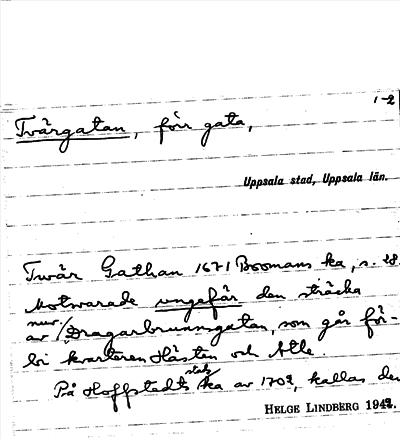 1-2
Tvärgatan, förr gata,
Uppsala stad, Uppsala län.
Twär Gathan 1671 Boomans ka, s. 28.
Motsvarade ungefär den sträcka
av nuv. Dragarbrunnsgatan, som går för-
bi kvarteren Hästen och Atle.
På Hoffstedts stadska av 1702, kallas den
HELGE LINDBERG 1942.